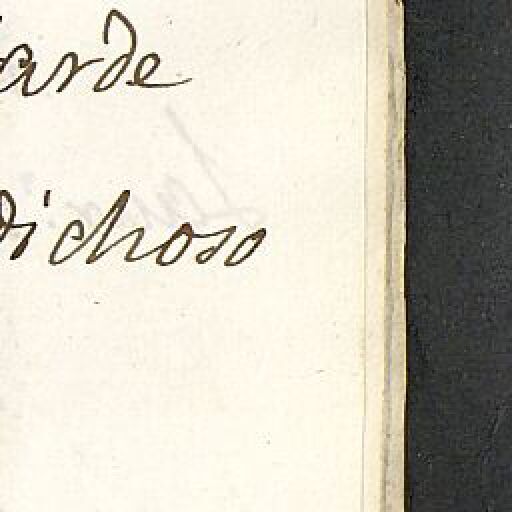 arde
dichoso